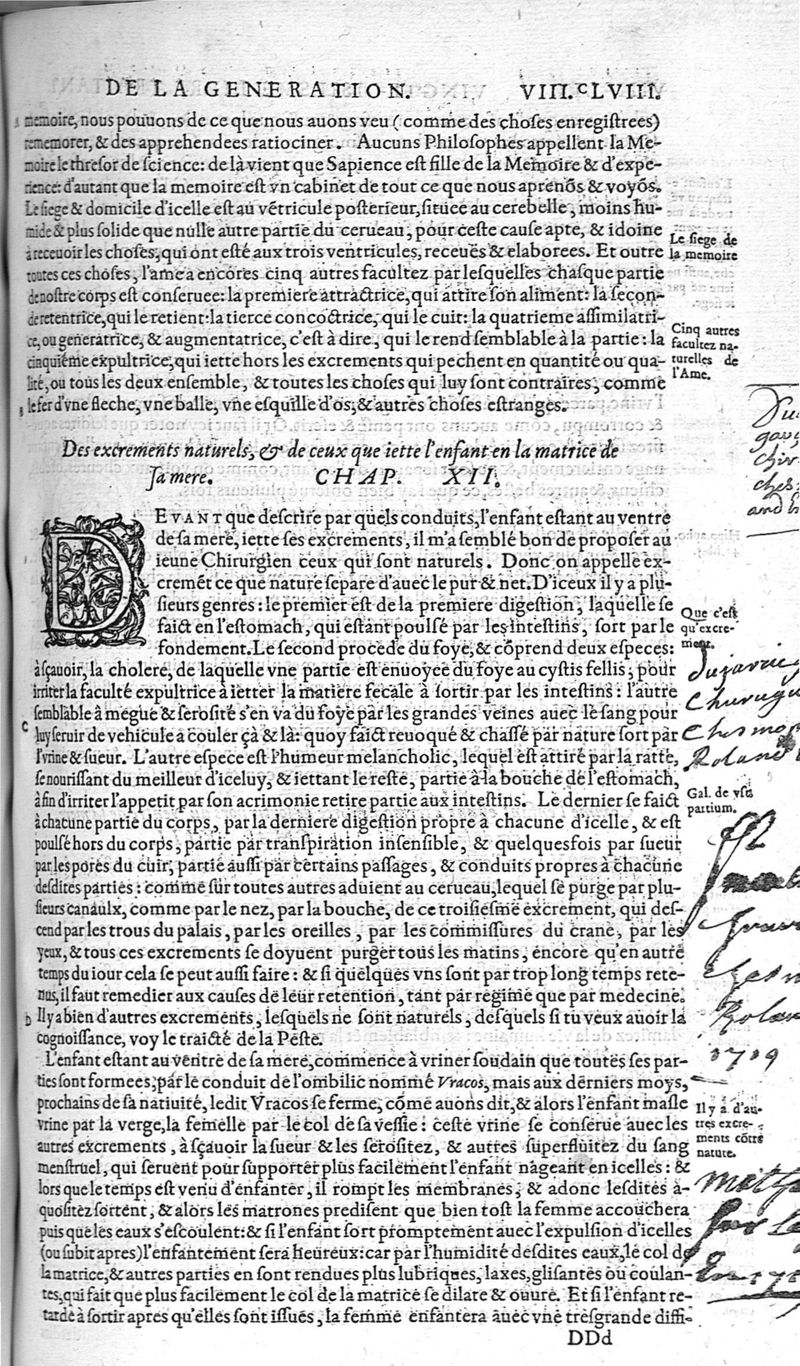 DE LA GENERATION. VIII.ᶜLVIII.
memoire, nous pouuons de ce que nous auons veu (comme des choses enregistrees)
rememorer, & des apprehendees ratiociner. Aucuns Philosophes appellent la Me-
moire le thresor de science: de là vient que Sapience est fille de la Memoire & d'expe-
rience: d'autant que la memoire est vn cabinet de tout ce que nous aprenõs & voyõs.
Le siege & domicile d'icelle est au vẽtricule posterieur, situee au cerebelle, moins hu-
mide & plus solide que nulle autre partie du cerueau, pour ceste cause apte, & idoine
à receuoir les choses, qui ont esté aux trois ventricules, receuës & elaborees. Et outre
toutes ces choses, l'ame a encores cinq autres facultez par lesquelles chasque partie
de nostre corps est conseruee: la premiere attractrice, qui attire son aliment: la secon-
de retentrice, qui le retient: la tierce concoctrice, qui le cuit: la quatrieme assimilatri-
ce, ou generatrice, & augmentatrice, c'est à dire, qui le rend semblable à la partie: la
cinquiéme expultrice, qui iette hors les excrements qui pechent en quantité ou qua-
lité, ou tous les deux ensemble, & toutes les choses qui luy sont contraires, comme
le fer d'vne fleche, vne balle, vne esquille d'os, & autres choses estranges.
Le siege de
la memoire
Cinq autres
facultez na-
turelles de
l'Ame.
Des excrements naturels, & de ceux que iette l'enfant en la matrice de
sa mere. CHAP. XII.
DEVANT que descrire par quels conduits, l'enfant estant au ventre
de sa mere, iette ses excrements, il m'a semblé bon de proposer au
ieune Chirurgien ceux qui sont naturels. Donc on appelle ex-
cremẽt ce que nature separe d'auec le pur & net. D'iceux il y a plu-
sieurs genres: le premier est de la premiere digestion, laquelle se
faict en l'estomach, qui estant poulsé par les intestins, sort par le
fondement. Le second procede du foye, & cõprend deux especes:
à sçauoir, la cholere, de laquelle vne partie est enuoyee du foye au cystis fellis, pour
irriter la faculté expultrice à ietter la matiere fecale à sortir par les intestins: l'autre
semblable à megue & serosité s'en va du foye par les grandes veines auec le sang pour
luy seruir de vehicule a couler çà & là: quoy faict reuoqué & chassé par nature sort par
l'vrine & sueur. L'autre espece est l'humeur melancholic, lequel est attiré par la ratte,
se nourissant du meilleur d'iceluy, & iettant le reste, partie à la bouche de l'estomach,
à fin d'irriter l'appetit par son acrimonie retire partie aux intestins. Le dernier se faict
à chacune partie du corps, par la derniere digestion propre à chacune d'icelle, & est
poulsé hors du corps, partie par transpiration insensible, & quelquesfois par sueur
par les pores du cuir, partie aussi par certains passages, & conduits propres à chacune
desdites parties: comme sur toutes autres aduient au cerueau, lequel se purge par plu-
sieurs canaulx, comme par le nez, par la bouche, de ce troisiesme excrement, qui des-
cend par les trous du palais, par les oreilles, par les commissures du crane, par les
yeux, & tous ces excrements se doyuent purger tous les matins, encore qu'en autre
temps du iour cela se peut aussi faire: & si quelques vns sont par trop long temps rete-
nus, il faut remedier aux causes de leur retention, tant par regime que par medecine.
Il y a bien d'autres excrements, lesquels ne sont naturels, desquels si tu veux auoir la
cognoissance, voy le traicté de la Peste.
L'enfant estant au ventre de sa mere, commence à vriner soudain que toutes ses par-
ties sont formees, par le conduit de l'ombilic nommé Vracos, mais aux derniers moys,
prochains de sa natiuité, ledit Vracos se ferme, cõme auons dit, & alors l'enfant masle
vrine par la verge, la femelle par le col de sa vessie: ceste vrine se conserue auec les
autres excrements, à sçauoir la sueur & les serositez, & autres superfluitez du sang
menstruel, qui seruent pour supporter plus facilement l'enfant nageant en icelles: &
lors que le temps est venu d'enfanter, il rompt les membranes, & adonc lesdites a-
quositez sortent, & alors les matrones predisent que bien tost la femme accouchera
puis que les eaux s'escoulent: & si l'enfant sort promptement auec l'expulsion d'icelles
(ou subit apres) l'enfantement sera heureux: car par l'humidité desdites eaux, le col de
la matrice, & autres parties en sont rendues plus lubriques, laxes, glisantes ou coulan-
tes, qui fait que plus facilement le col de la matrice se dilate & ouure. Et si l'enfant re-
tarde à sortir apres qu'elles sont issues, la femme enfantera auec vne tresgrande diffi-
DDd
Que c'est
qu'excre-
ment.
C
Gal. de vsu
partium.
D
Il y a d'au-
tres excre-
ments cõtre
nature.
Roland
1719